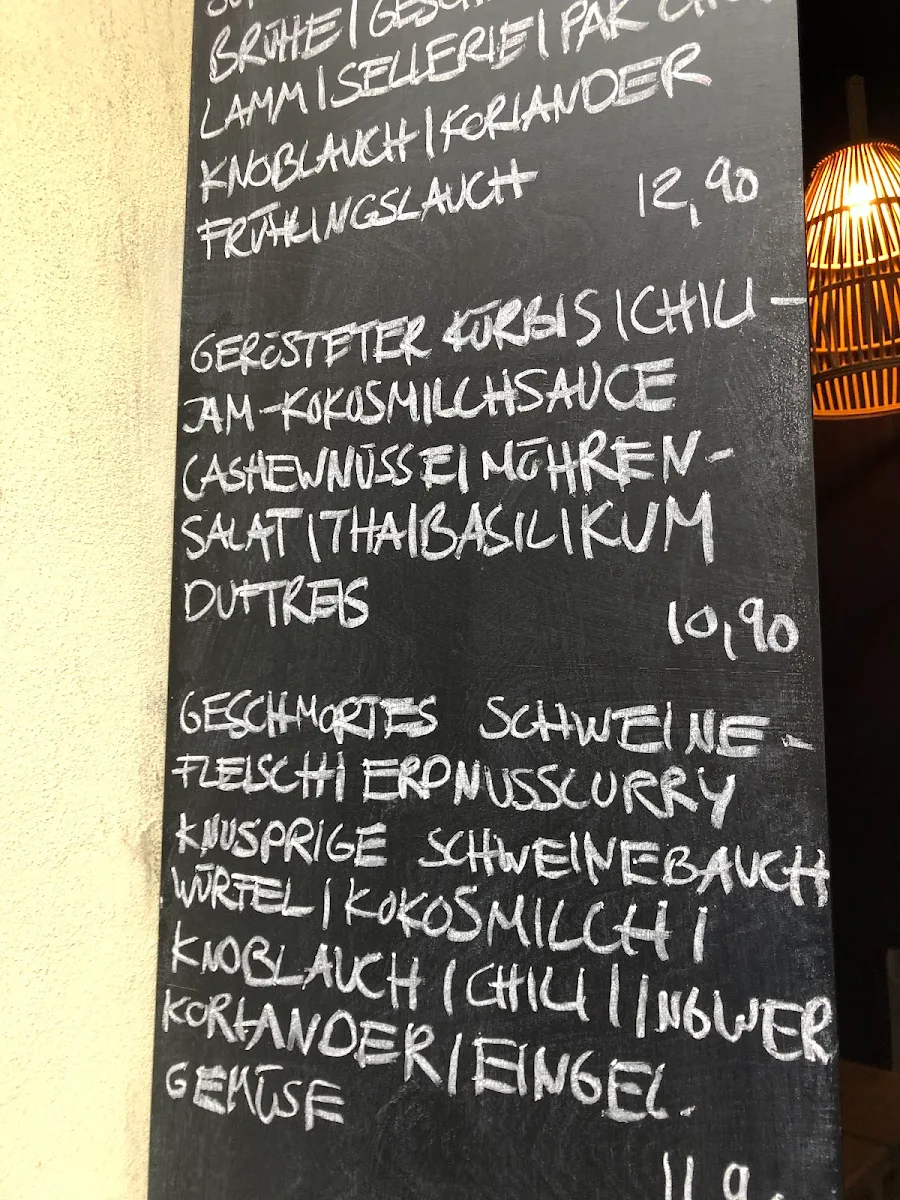 BRÜHE | GESCH
LAMM | SELLERIE | PAK CHOI
KNOBLAUCH | KORIANDER
FRÜHLINGSLAUCH 12,90
GERÖSTETER KÜRBIS | CHILI-
JAM-KOKOSMILCHSAUCE
CASHEWNÜSSE | MÖHREN-
SALAT | THAIBASILIKUM
DUFTREIS 10,90
GESCHMORTES SCHWEINE-
FLEISCH | ERDNUSSCURRY
KNUSPRIGE SCHWEINEBAUCH
WÜRFEL | KOKOSMILCH |
KNOBLAUCH | CHILI | INGWER
KORIANDER | EINGEL.
GEMÜSE